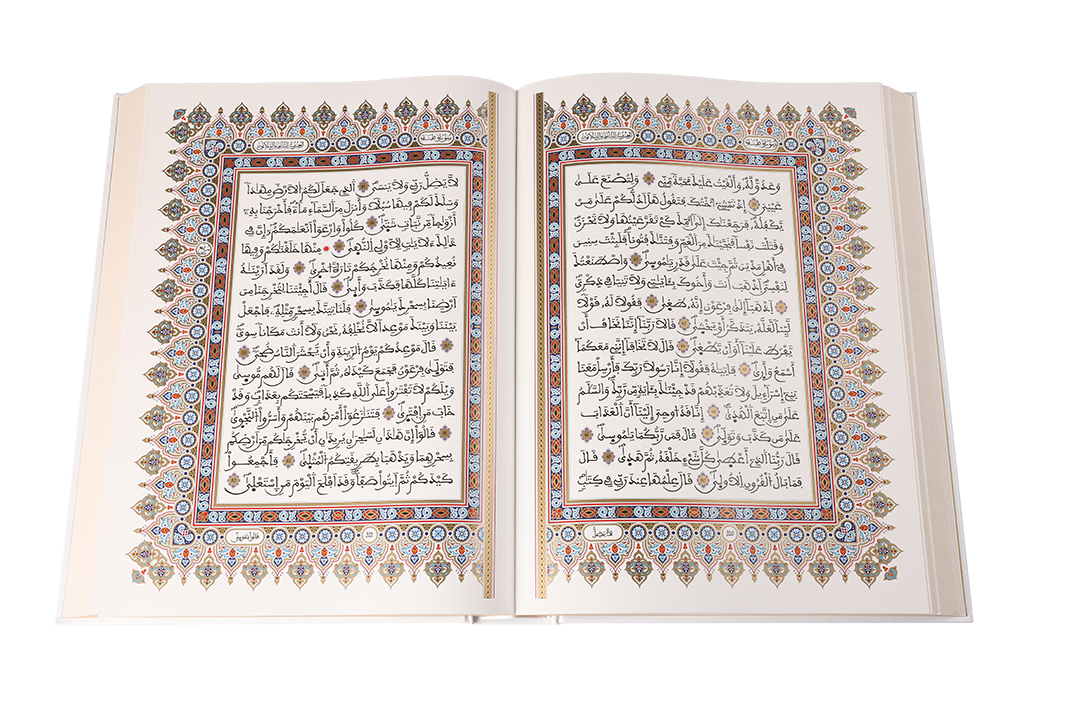 سورة طه
الحزب الثاني والثلاثون
وَعَدُوٌّ لَّهُ وَأَلْقَيْتُ عَلَيْكَ مَحَبَّةً مِّنِّي وَلِتُصْنَعَ عَلَىٰ
عَيْنِيَ إِذْ تَمْشِي أُخْتُكَ فَتَقُولُ هَلْ أَدُلُّكُمْ عَلَىٰ مَنْ
يَكْفُلُهُ فَرَجَعْنَٰكَ إِلَىٰ أُمِّكَ كَيْ تَقَرَّ عَيْنُهَا وَلَا تَحْزَنَ
وَقَتَلْتَ نَفْسًا فَنَجَّيْنَٰكَ مِنَ ٱلْغَمِّ وَفَتَنَّٰكَ فُتُونًا فَلَبِثْتَ سِنِينَ
فِي أَهْلِ مَدْيَنَ ثُمَّ جِئْتَ عَلَىٰ قَدَرٍ يَٰمُوسَىٰ وَٱصْطَنَعْتُكَ
لِنَفْسِيَ ٱذْهَبْ أَنتَ وَأَخُوكَ بِـَٔايَٰتِي وَلَا تَنِيَا فِي ذِكْرِيَ
ٱذْهَبَا إِلَىٰ فِرْعَوْنَ إِنَّهُ طَغَىٰ فَقُولَا لَهُ قَوْلًا
لَّيِّنًا لَّعَلَّهُ يَتَذَكَّرُ أَوْ يَخْشَىٰ قَالَا رَبَّنَا إِنَّنَا نَخَافُ أَن
يَفْرُطَ عَلَيْنَا أَوْ أَن يَطْغَىٰ قَالَ لَا تَخَافَا إِنَّنِي مَعَكُمَا
أَسْمَعُ وَأَرَىٰ فَأْتِيَٰهُ فَقُولَا إِنَّا رَسُولَا رَبِّكَ فَأَرْسِلْ مَعَنَا
بَنِي إِسْرَٰٓءِيلَ وَلَا تُعَذِّبْهُمْ قَدْ جِئْنَٰكَ بِـَٔايَةٍ مِّن رَّبِّكَ وَٱلسَّلَٰمُ
عَلَىٰ مَنِ ٱتَّبَعَ ٱلْهُدَىٰ إِنَّا قَدْ أُوحِيَ إِلَيْنَا أَنَّ ٱلْعَذَابَ
عَلَىٰ مَن كَذَّبَ وَتَوَلَّىٰ قَالَ فَمَن رَّبُّكُمَا يَٰمُوسَىٰ
قَالَ رَبُّنَا ٱلَّذِي أَعْطَىٰ كُلَّ شَيْءٍ خَلْقَهُ ثُمَّ هَدَىٰ قَالَ
فَمَا بَالُ ٱلْقُرُونِ ٱلْأُولَىٰ قَالَ عِلْمُهَا عِندَ رَبِّي فِي كِتَٰبٍ
لَّا يَضِلُّ
سورة طه
الحزب الثاني والثلاثون
لَّا يَضِلُّ رَبِّي وَلَا يَنسَى ٱلَّذِي جَعَلَ لَكُمُ ٱلْأَرْضَ مِهَٰدًا
وَسَلَكَ لَكُمْ فِيهَا سُبُلًا وَأَنزَلَ مِنَ ٱلسَّمَآءِ مَآءً فَأَخْرَجْنَا بِهِ
أَزْوَٰجًا مِّن نَّبَاتٍ شَتَّىٰ كُلُوا وَٱرْعَوْا أَنْعَٰمَكُمْ إِنَّ فِي
ذَٰلِكَ لَأٓيَٰتٍ لِّأُولِي ٱلنُّهَىٰ مِنْهَا خَلَقْنَٰكُمْ وَفِيهَا
نُعِيدُكُمْ وَمِنْهَا نُخْرِجُكُمْ تَارَةً أُخْرَىٰ وَلَقَدْ أَرَيْنَٰهُ
ءَايَٰتِنَا كُلَّهَا فَكَذَّبَ وَأَبَىٰ قَالَ أَجِئْتَنَا لِتُخْرِجَنَا مِنْ
أَرْضِنَا بِسِحْرِكَ يَٰمُوسَىٰ فَلَنَأْتِيَنَّكَ بِسِحْرٍ مِّثْلِهِ فَٱجْعَلْ
بَيْنَنَا وَبَيْنَكَ مَوْعِدًا لَّا نُخْلِفُهُ نَحْنُ وَلَا أَنتَ مَكَانًا سِوًى
قَالَ مَوْعِدُكُمْ يَوْمُ ٱلزِّينَةِ وَأَن يُحْشَرَ ٱلنَّاسُ ضُحًى
فَتَوَلَّىٰ فِرْعَوْنُ فَجَمَعَ كَيْدَهُ ثُمَّ أَتَىٰ قَالَ لَهُم مُّوسَىٰ
وَيْلَكُمْ لَا تَفْتَرُوا عَلَى ٱللَّهِ كَذِبًا فَيَسْحَتَكُم بِعَذَابٍ وَقَدْ
خَابَ مَنِ ٱفْتَرَىٰ فَتَنَٰزَعُوا أَمْرَهُم بَيْنَهُمْ وَأَسَرُّوا ٱلنَّجْوَىٰ
قَالُوا إِنَّ هَٰذَٰنِ لَسَٰحِرَٰنِ يُرِيدَٰنِ أَن يُخْرِجَٰكُم مِّنْ أَرْضِكُم
بِسِحْرِهِمَا وَيَذْهَبَا بِطَرِيقَتِكُمُ ٱلْمُثْلَىٰ فَأَجْمِعُوا
كَيْدَكُمْ ثُمَّ ٱئْتُوا صَفًّا وَقَدْ أَفْلَحَ ٱلْيَوْمَ مَنِ ٱسْتَعْلَىٰ
قَالُوا يَٰمُوسَىٰ